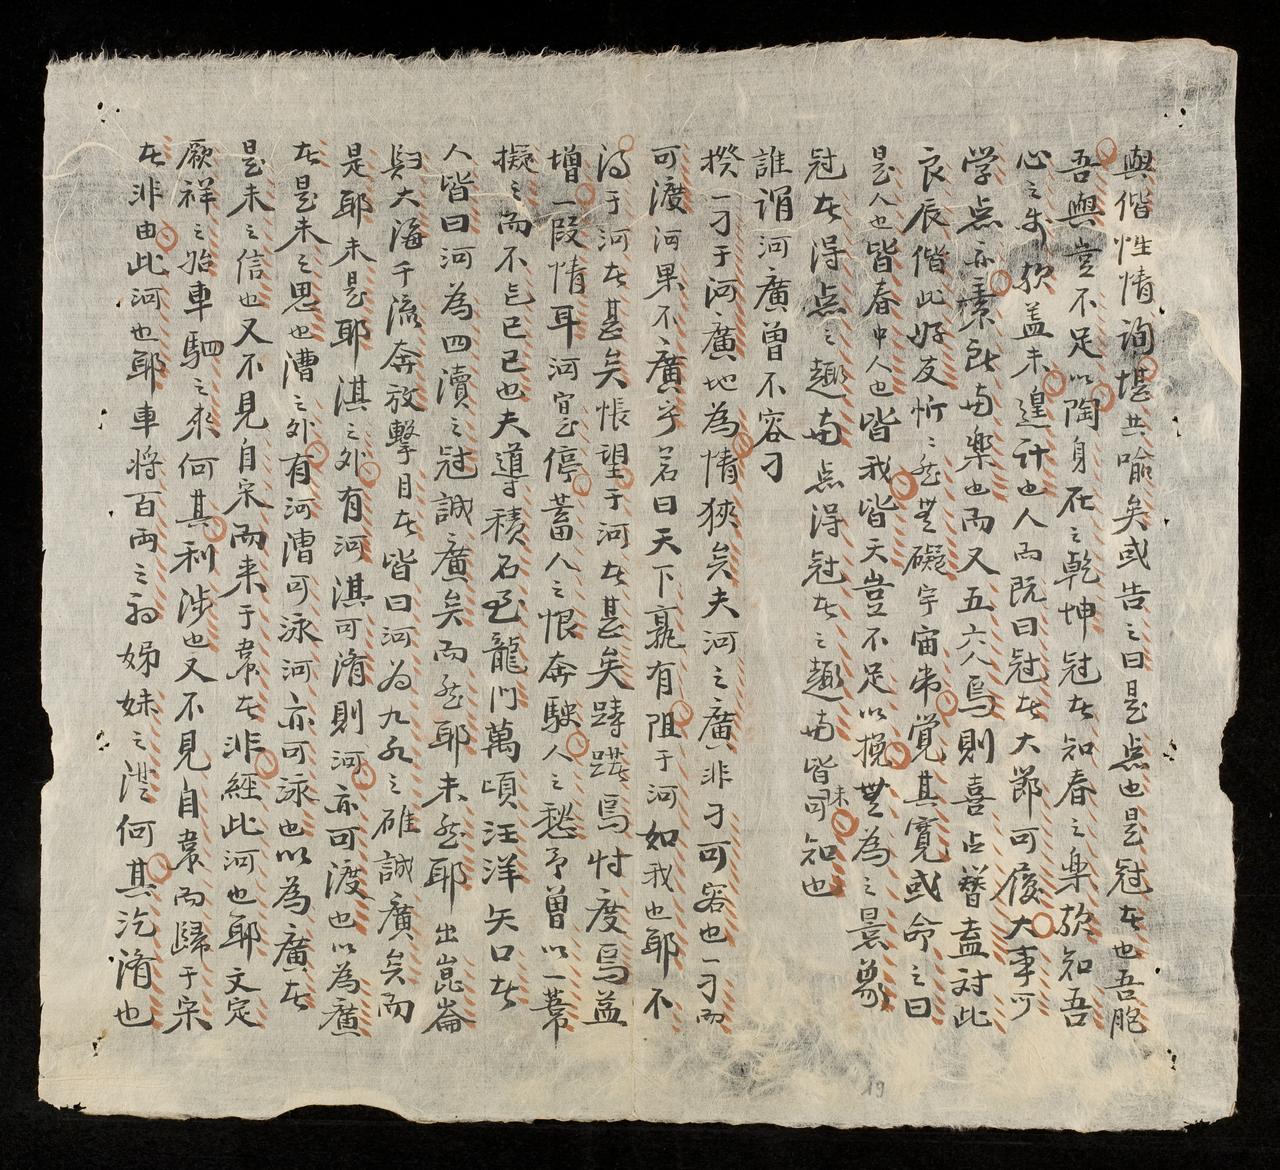 與偕性情詢堪共喻矣或告之曰是点也是冠者也吾胞
吾與豈不足以陶身在之乾坤冠者知春之樂欤知吾
心之樂欤盖未遑计也人而既曰冠者大節可履大事可
学点亦素能与樂也而又五六人焉則喜占簪盍対此
良辰偕此好友忻忻然無礙宇宙常覺其寬或命之曰
是人也皆春中人也皆我皆天豈不足以挽無為之景象
冠者得点之趣与点得冠者之趣与皆可未知也
誰謂河廣曾不容刀
揆一刀于河廣地為情狹矣夫河之廣非刀可容也一刀而
可渡河果不廣乎若曰天下孰有阻于河如我也耶不
得于河者甚矣悵望于河者甚矣踌躇焉忖度焉益
增一段情耳河寔停蓄人之恨奔駛人之愁予曾以一葦
擬之而不已已也夫導積石至龍门萬頃汪洋矢口者
人皆曰河為四瀆之冠誠廣矣而然耶未然耶出崑崙
歸大海千流奔放擊目者皆曰河为九水之雄誠廣矣而
是耶未是耶淇之外有河淇可淆則河亦可渡也以為廣
者是未之思也漕之外有河漕可泳河亦可泳也以為廣者
是未之信也又不見自宋而来于衛者非經此河也耶文定
厥祥之始車駟之來何其利涉也又不見自衛而歸于宋
者非由此河也耶車将百両之初娣妹之從何其汔淆也